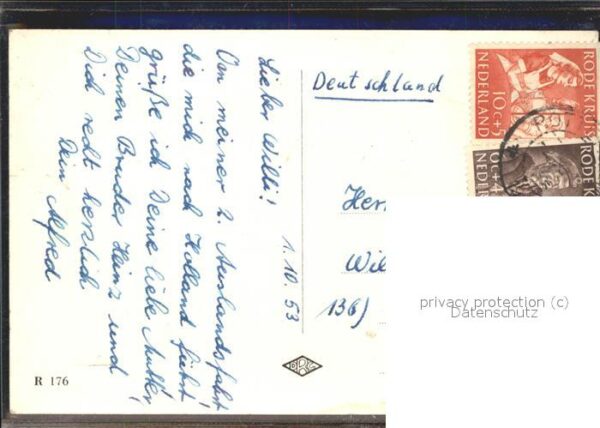 1.10.53
Lieber Willi!
Von meiner 2. Auslandsfahrt
die mich nach Holland führt
grüße ich Deine liebe Mutter,
Deinen Bruder Heinz und
Dich recht herzlich
Dein Alfred
R 176
Deutschland
Herr
Wil
13b)
RODE KRUIS
10c+5
NEDERLAND
RODE K
NEDE
privacy protection (c)
Datenschutz